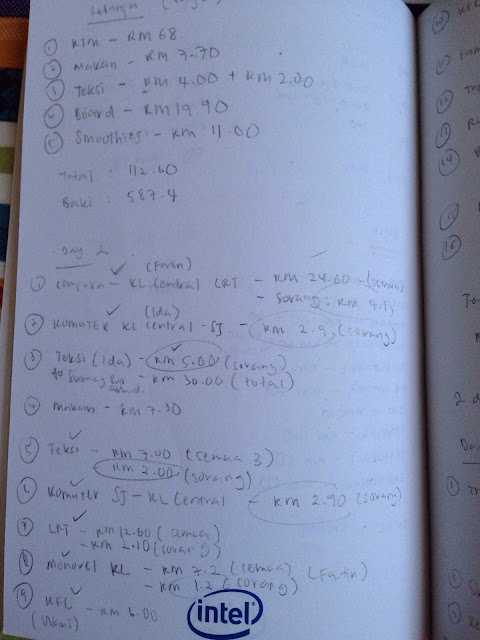 Belanja
① KTM - RM 68.
② Makan - RM 7.70
③ Teksi - RM 4.00 + RM 2.00
④ Board - RM 19.90
⑤ Smoothies - RM 11.00
Total : 112.60
Baki : 587.4
Day 2
(Fatin)
① Cempaka - KL Central LRT - RM 24.60 - (semua)
- Sorang : RM 4.1
(Ida)
② Komuter KL Central - SJ - RM 2.9 (sorang)
③ Teksi (Ida) - RM 5.00 (sorang)
to Sunway - RM 30.00 (total)
④ Makan - RM 7.30
⑤ Teksi - RM 7.00 (semua 3)
RM 2.00 (sorang)
⑥ Komuter SJ - KL Central - RM 2.90 (sorang)
⑦ LRT - RM 12.60 (semua)
- RM 2.10 (sorang)
⑧ Monorel KL - RM 7.2 (semua) (Fatin)
- RM 1.2 (sorang)
⑨ KFC - RM 6.00
(Wani)
intel